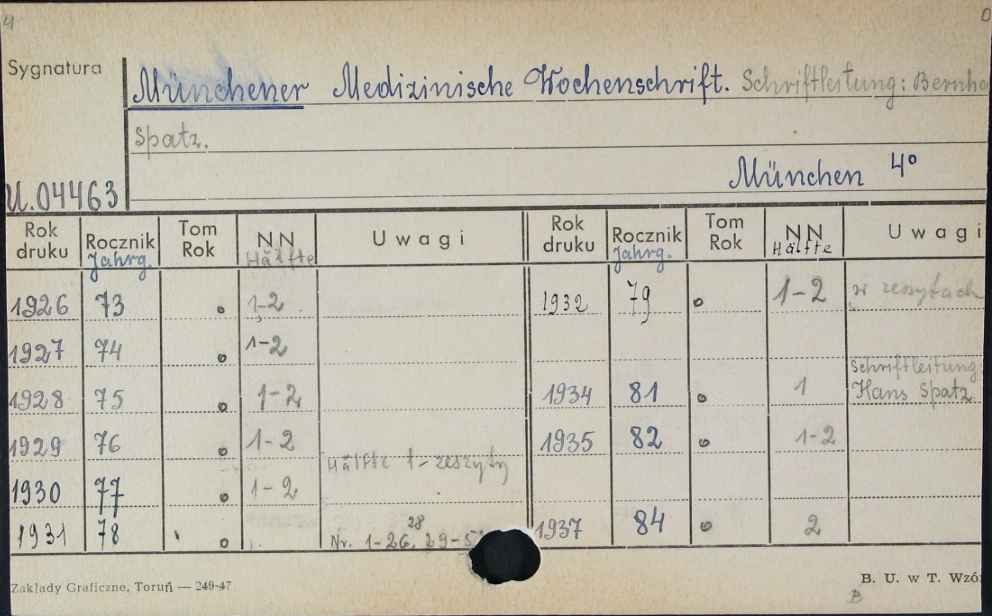 4
Sygnatura
Münchener Medizinische Wochenschrift. Schriftleitung: Bernha
Spatz.
U.04463
München 4°
Rok druku Rocznik Jahrg. Tom Rok NN Hälfte Uwagi Rok druku Rocznik Jahrg. Tom Rok NN Hälfte Uwagi
1926 73 o 1-2 1932 79 o 1-2 w zeszytach
1927 74 o 1-2
1928 75 o 1-2 1934 81 o 1 Schriftleitung: Hans Spatz
1929 76 o 1-2 1935 82 o 1-2
Hälfte 1-zeszyty
1930 77 o 1-2
1931 78 o Nr. 1-26, 28 29-5 1937 84 o 2
Zakłady Graficzne, Toruń — 249-47
B. U. w T. Wzó
B